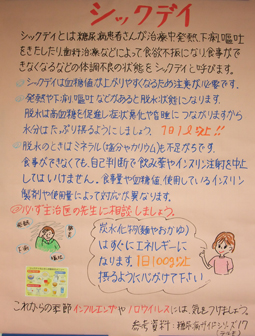 シックデイ
シックデイとは糖尿病患者さんが治療中発熱、下痢、嘔吐
をきたしたり、歯科治療などによって食欲不振になり、食事がで
きなくなるなどの体調不良の状態をシックデイと呼びます。
シックデイは血糖値が上がりやすくなるため注意が必要です。
発熱や下痢、嘔吐などがあると脱水状態になります。
脱水は高血糖を促進し症状悪化や昏睡につながりますから
水分はたっぷり摂るようにしましょう。1日1ℓ以上!!
脱水のときはミネラル(塩分やカリウム)も不足がちです。
食事ができなくても、自己判断で飲み薬やインスリン注射を中止
してはいけません。食事量や血糖値、使用しているインスリン
製剤や使用量によって対応が異なります。
必ず主治医の先生に相談しましょう。
発熱
下痢
嘔吐
炭水化物(麺やおかゆ)
はすぐにエネルギーに
なります。
1日100g以上
摂るように心がけて下さい
これからの季節インフルエンザやノロウイルスには気をつけましょう。
参考資料:糖尿病ガイドシリーズ17